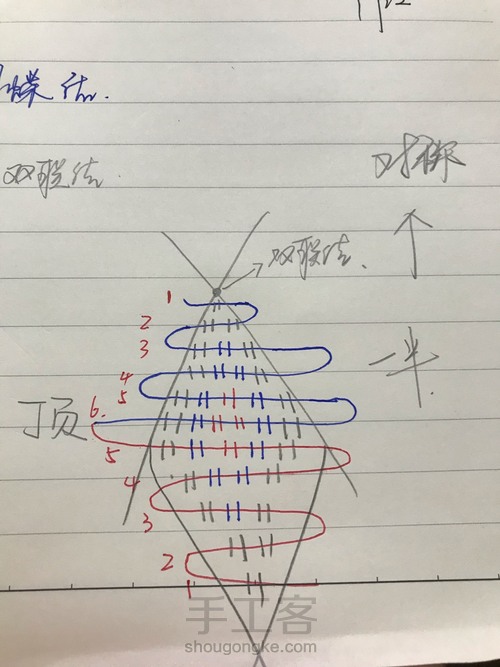 蝶结.
双联结.
对称
双联结.
1
2
3
4
5
一半.
顶
6.
5
4
3
2
1
手工客
shougongke.com